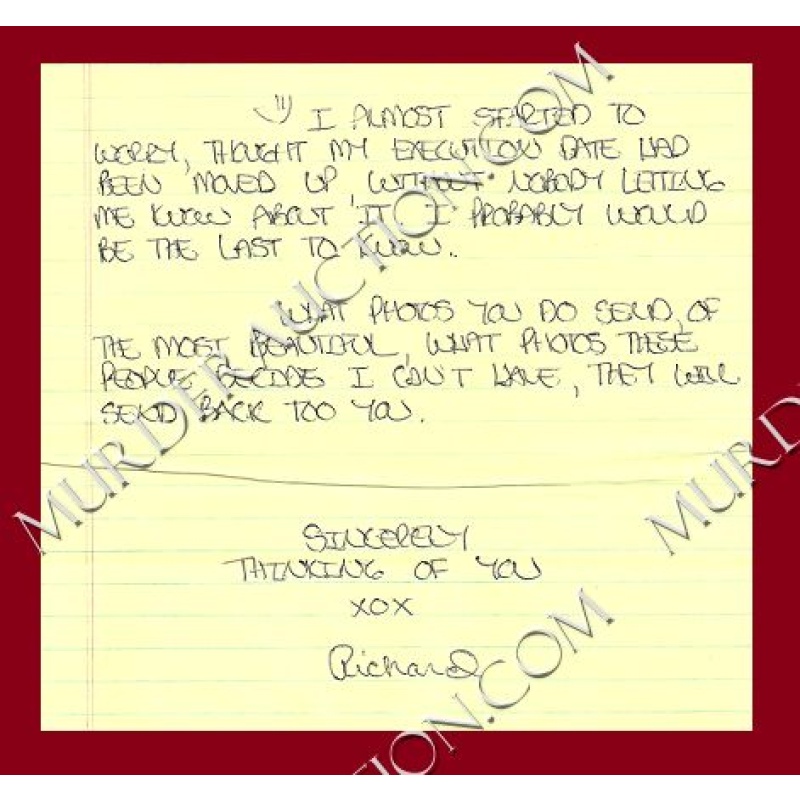 I ALMOST STARTED TO
WORRY, THOUGHT MY EXECUTION DATE HAD
BEEN MOVED UP, WITHOUT NOBODY LETTING
ME KNOW ABOUT IT I PROBABLY WOULD
BE THE LAST TO KNOW..
WHAT PHOTOS YOU DO SEND, OF
THE MOST BEAUTIFUL, WHAT PHOTOS THESE
PEOPLE DECIDE I CAN'T HAVE, THEY WILL
SEND BACK TOO YOU.
SINCERELY
THINKING OF YOU
XOX
Richard
MURDERAUCTION.COM
MURD
ION.COM